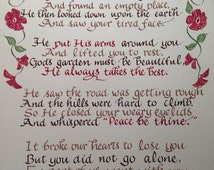 And found an empty place,
He then looked down upon the earth
And saw your tired face.
He put His arms around you
And lifted you to rest.
God's garden must be Beautiful,
He always takes the Best.
He saw the road was getting rough
And the hills were hard to climb.
So He closed your weary eyelids
And whispered "Peace be thine."
It broke our hearts to lose you
But you did not go alone,